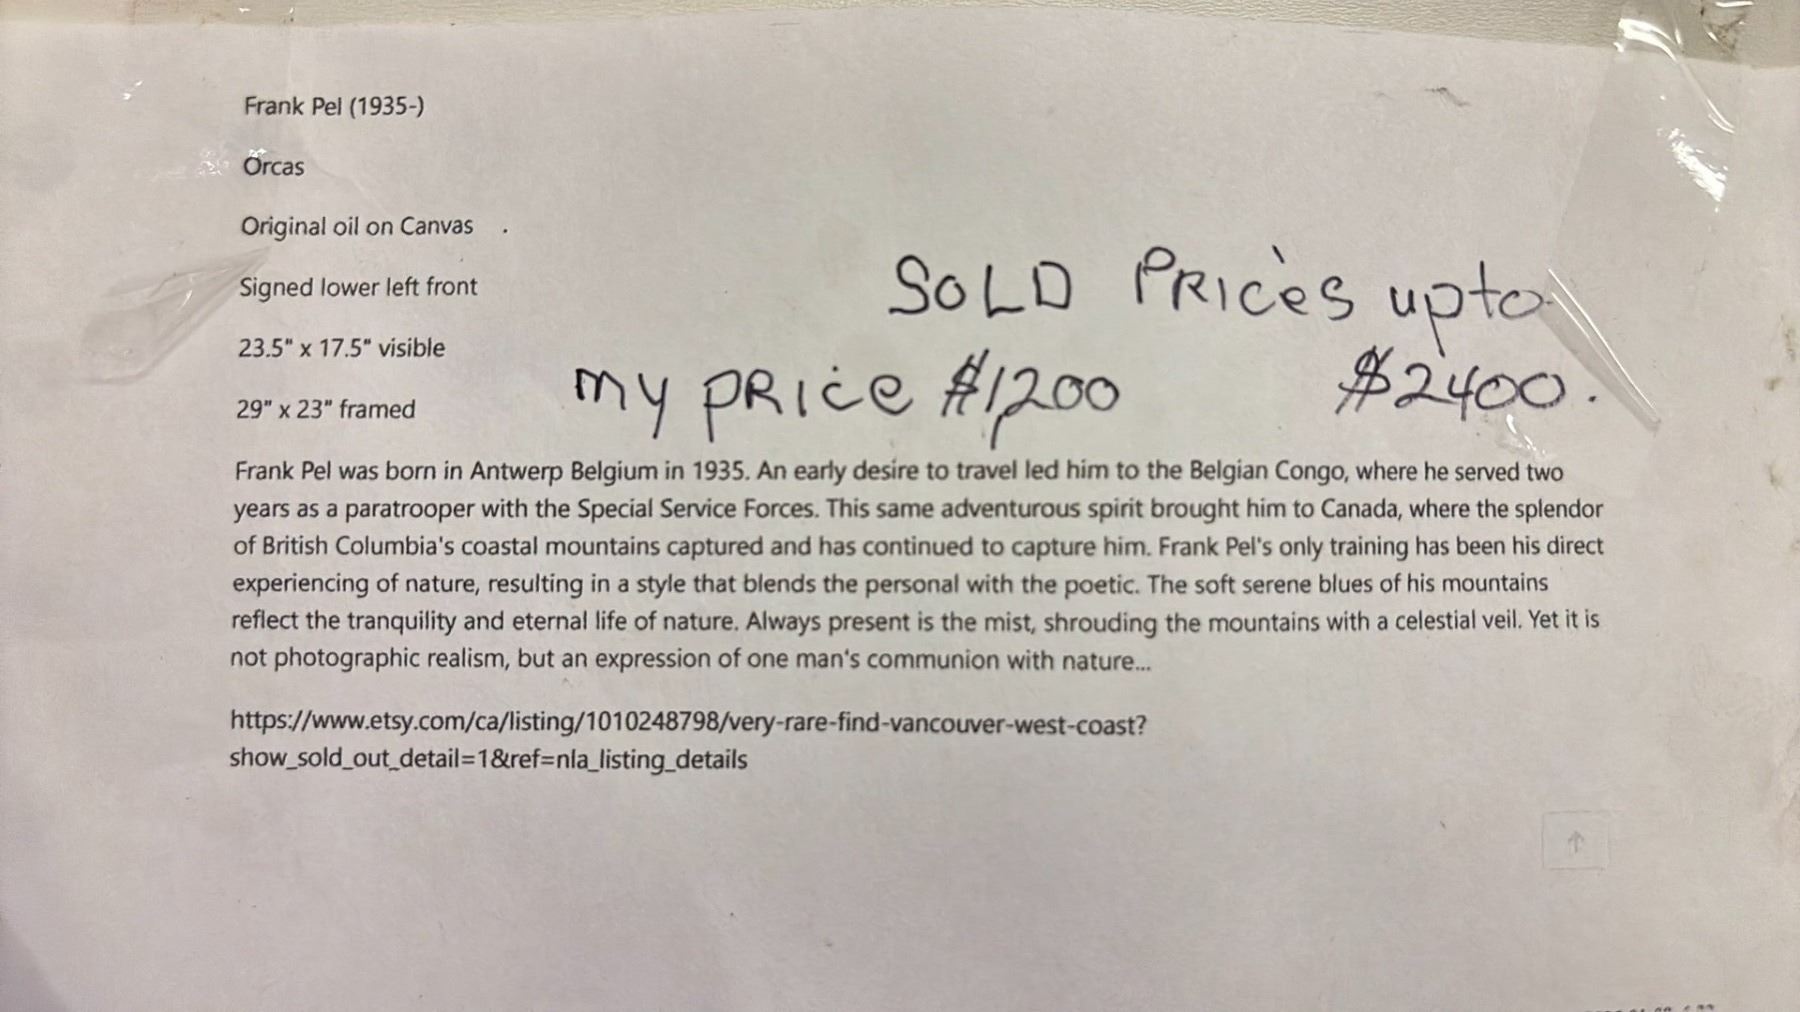 Frank Pel (1935-)
Orcas
Original oil on Canvas .
Signed lower left front
SOLD PRICES upto
23.5" x 17.5" visible
my PRice $1,200 $2400.
29" x 23" framed
Frank Pel was born in Antwerp Belgium in 1935. An early desire to travel led him to the Belgian Congo, where he served two
years as a paratrooper with the Special Service Forces. This same adventurous spirit brought him to Canada, where the splendor
of British Columbia's coastal mountains captured and has continued to capture him. Frank Pel's only training has been his direct
experiencing of nature, resulting in a style that blends the personal with the poetic. The soft serene blues of his mountains
reflect the tranquility and eternal life of nature. Always present is the mist, shrouding the mountains with a celestial veil. Yet it is
not photographic realism, but an expression of one man's communion with nature...
https://www.etsy.com/ca/listing/1010248798/very-rare-find-vancouver-west-coast?
show_sold_out_detail=1&ref=nla_listing_details